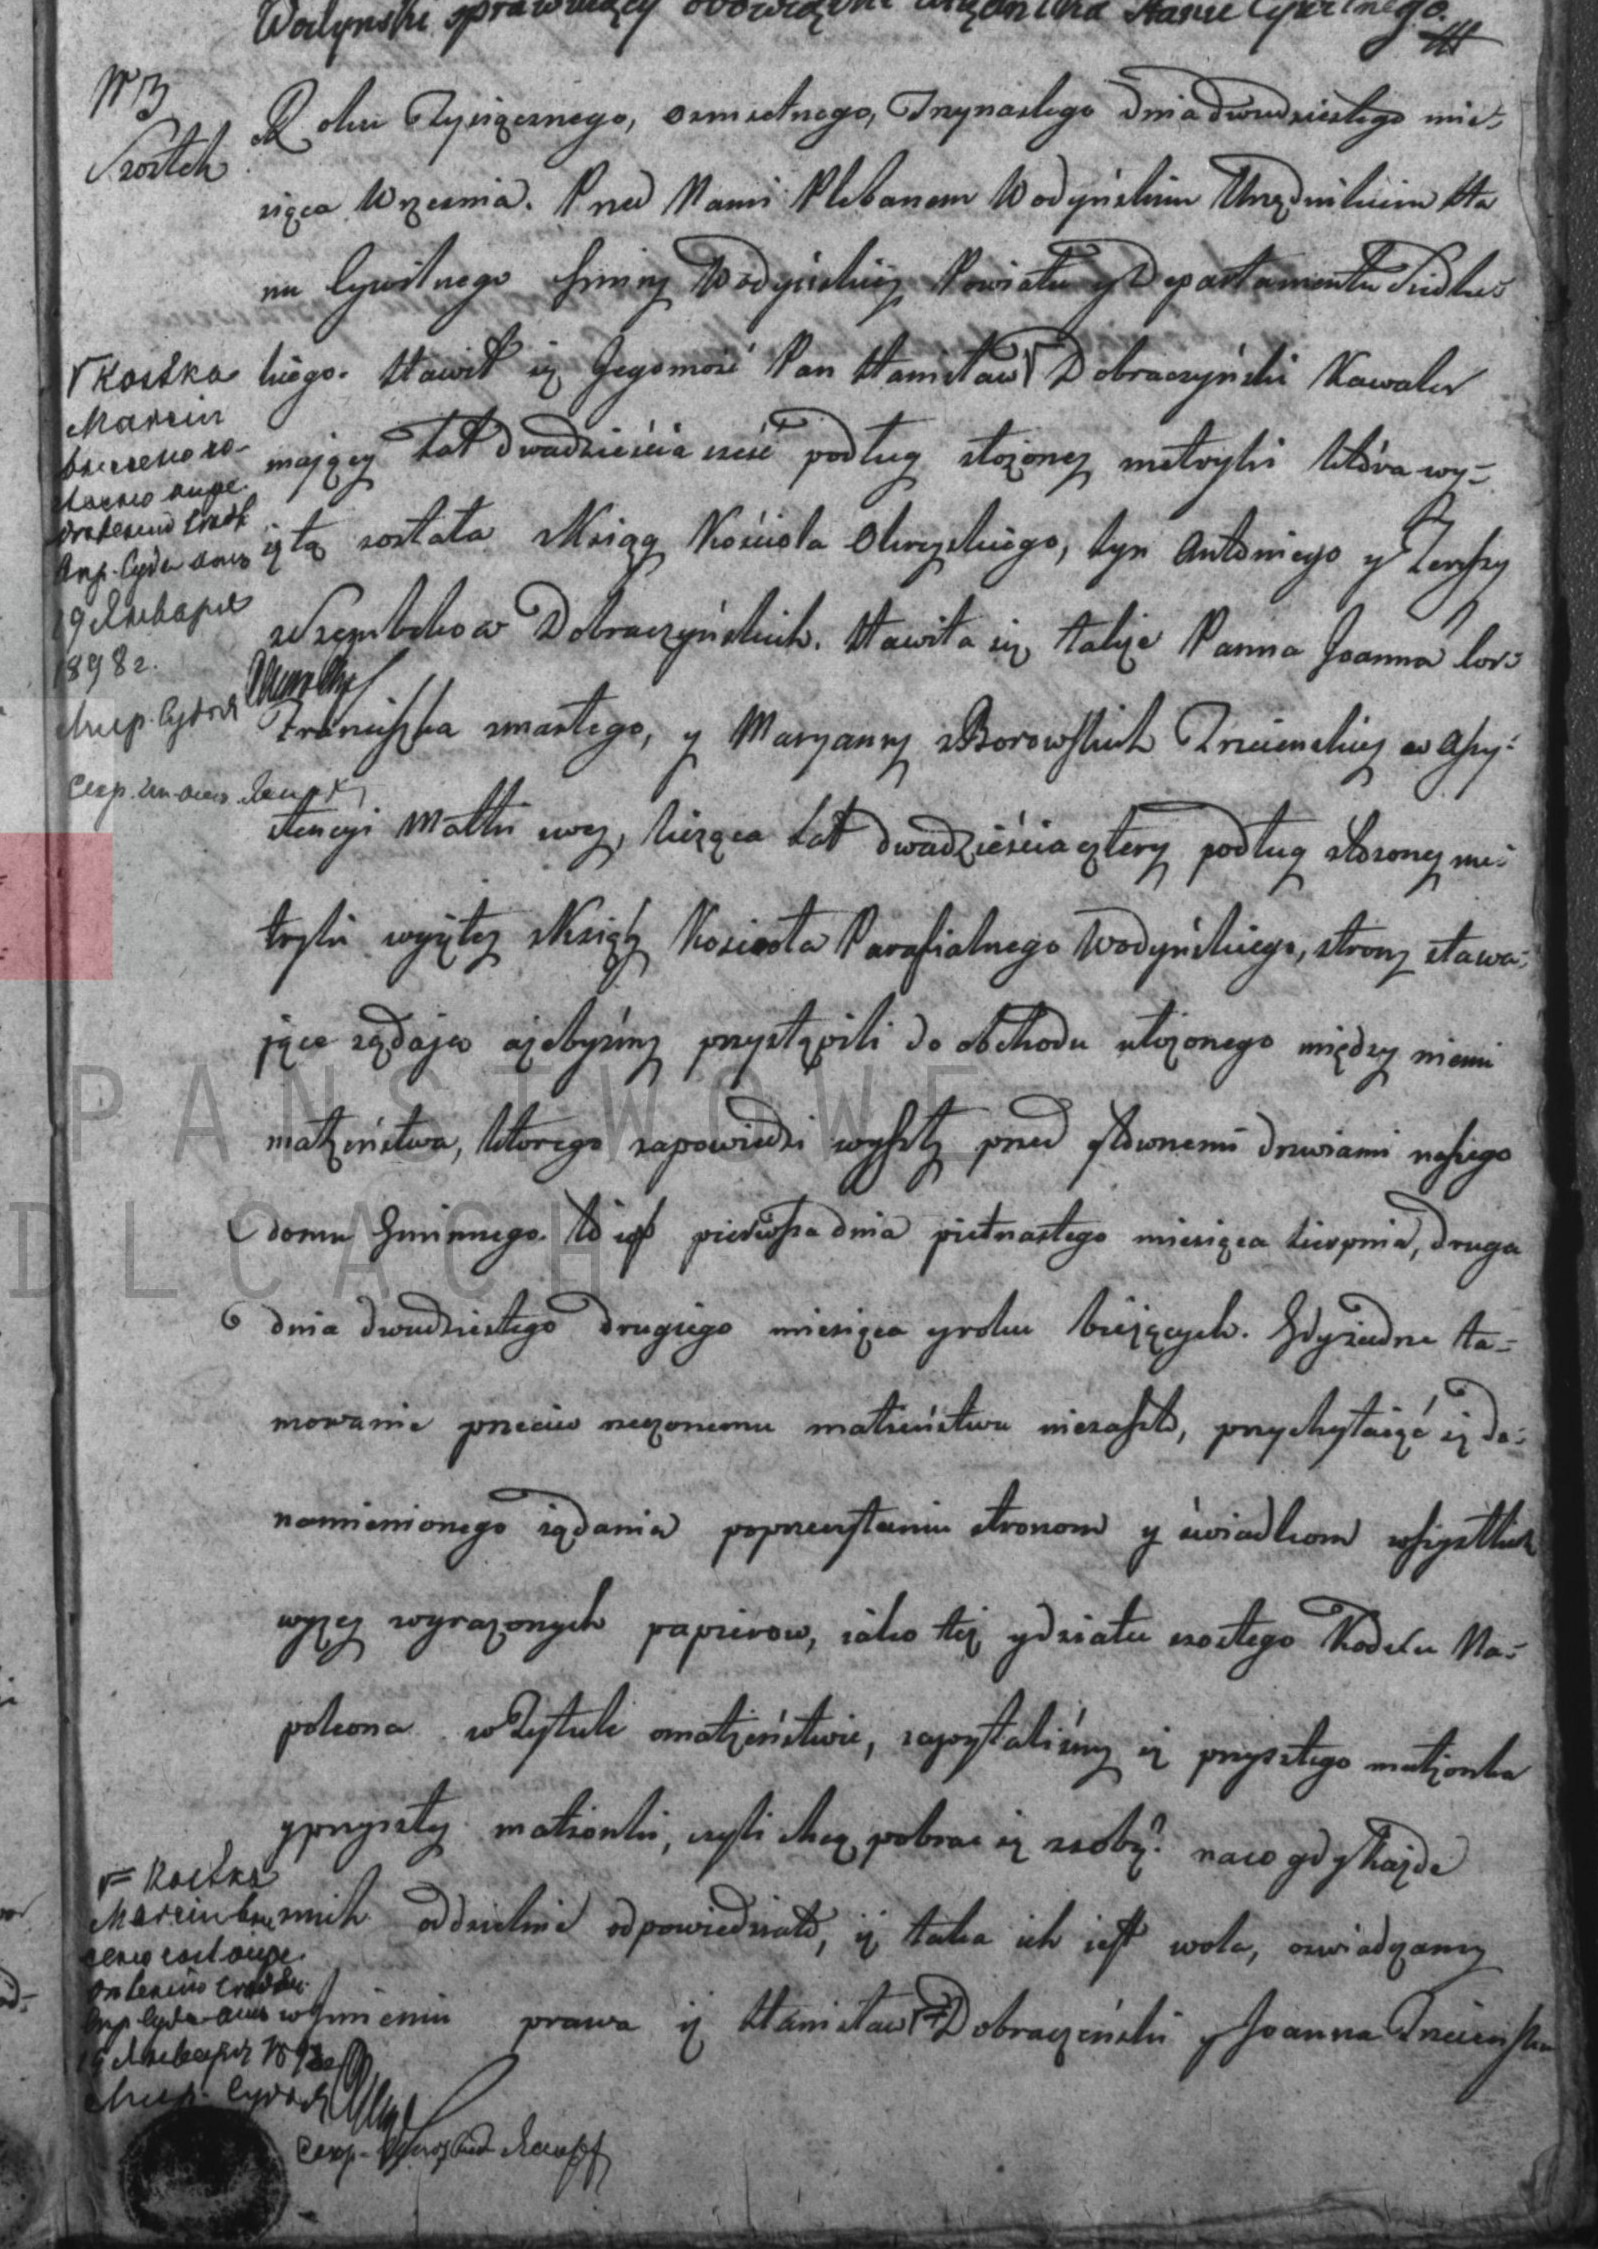 Wodynski sprawuiący obowiązki Urzędnika Stanu Cywilnego.
Nr 3
Szostek
Roku Tysiącznego, osmsetnego, Trzynastego dnia dwudziestego mie-
siąca Września. Przed Nami Plebanem Wodyńskim Urzędnikiem Sta
nu Cywilnego Gminy Wodyńskiey Powiatu y Departamentu Siedlec-
kiego. Stawił się Jegomość Pan Stanisław Γ Dobraczyński Kawaler
maiący lat dwadzieścia sześć podług złożoney metryki która wy-
iętą została z Ksiąg Kościoła Okrzyskiego, syn Antoniego y Teressy
z Szembekow Dobraczyńskich. Stawiła się także Panna Joanna cor-
Franciszka zmarłego, y Maryanny z Borowskich Trzcinskiey w assy-
stencyi Matki swey, licząca lat dwadzieścia cztery podług złożoney me-
tryki wyiętey z Ksiąg Kościoła Parafialnego Wodyńskiego, strony stawa-
iące żądaią ażebyśmy przystąpili do obchodu ułożonego między niemi
małżeństwa, którego zapowiedzi wyszły przed głównemi drzwiami naszego
domu Gminnego. to iest pierwsza dnia pietnastego miesiąca Sierpnia, druga
dnia dwudziestego drugiego miesiąca y roku bieżących. Gdy żadne ta-
mowanie przeciw rzeczonemu małżeństwu niezaszło, przychylaiąc się do
namienionego żądania poprzeczytaniu stronom y świadkom wszystkich
wyżey wyrażonych papierow, iako też y działu szostego Kodexu Na-
poleona w Tytule o małżeństwie, zapytaliśmy się przyszłego małżonka
y przyszłey małżonki, czyli chcą pobrac się z sobą? na co gdy każde
z nich oddzielnie odpowiedziało, iż taka ich iest wola, oswiadczamy
w Imieniu prawa iż Stanisław Γ= Dobraczyński y Joanna Trzcinska
Γ Kostka
Marcin
19 Января
1898 г.
Γ= Kostka
Marcin
19 Января 1898
PAŃSTWOWE
DLCACH